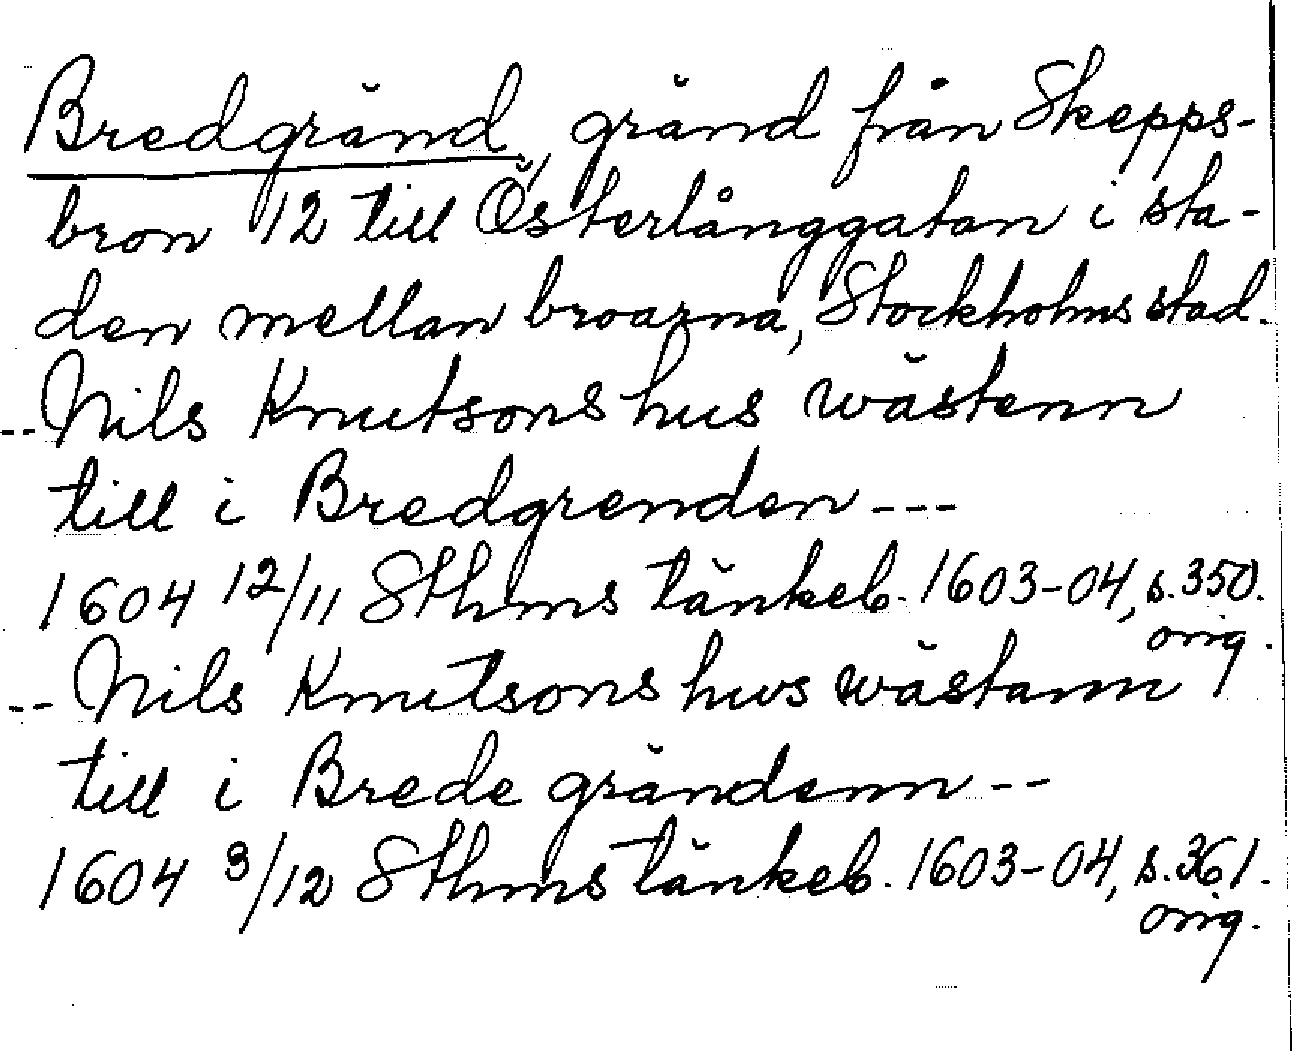 Bredgränd, gränd från Skepps-
bron 12 till Österlånggatan i sta-
den mellan broarna, Stockholms stad.
-- Nils Knutsons hus wästenn
till i Bredgrenden ---
1604 12/11 Sthms tänkeb. 1603-04, s. 350.
orig.
-- Nils Knutsons hus wästann
till i Brede grändenn --
1604 3/12 Sthms tänkeb. 1603-04, s. 361.
orig.